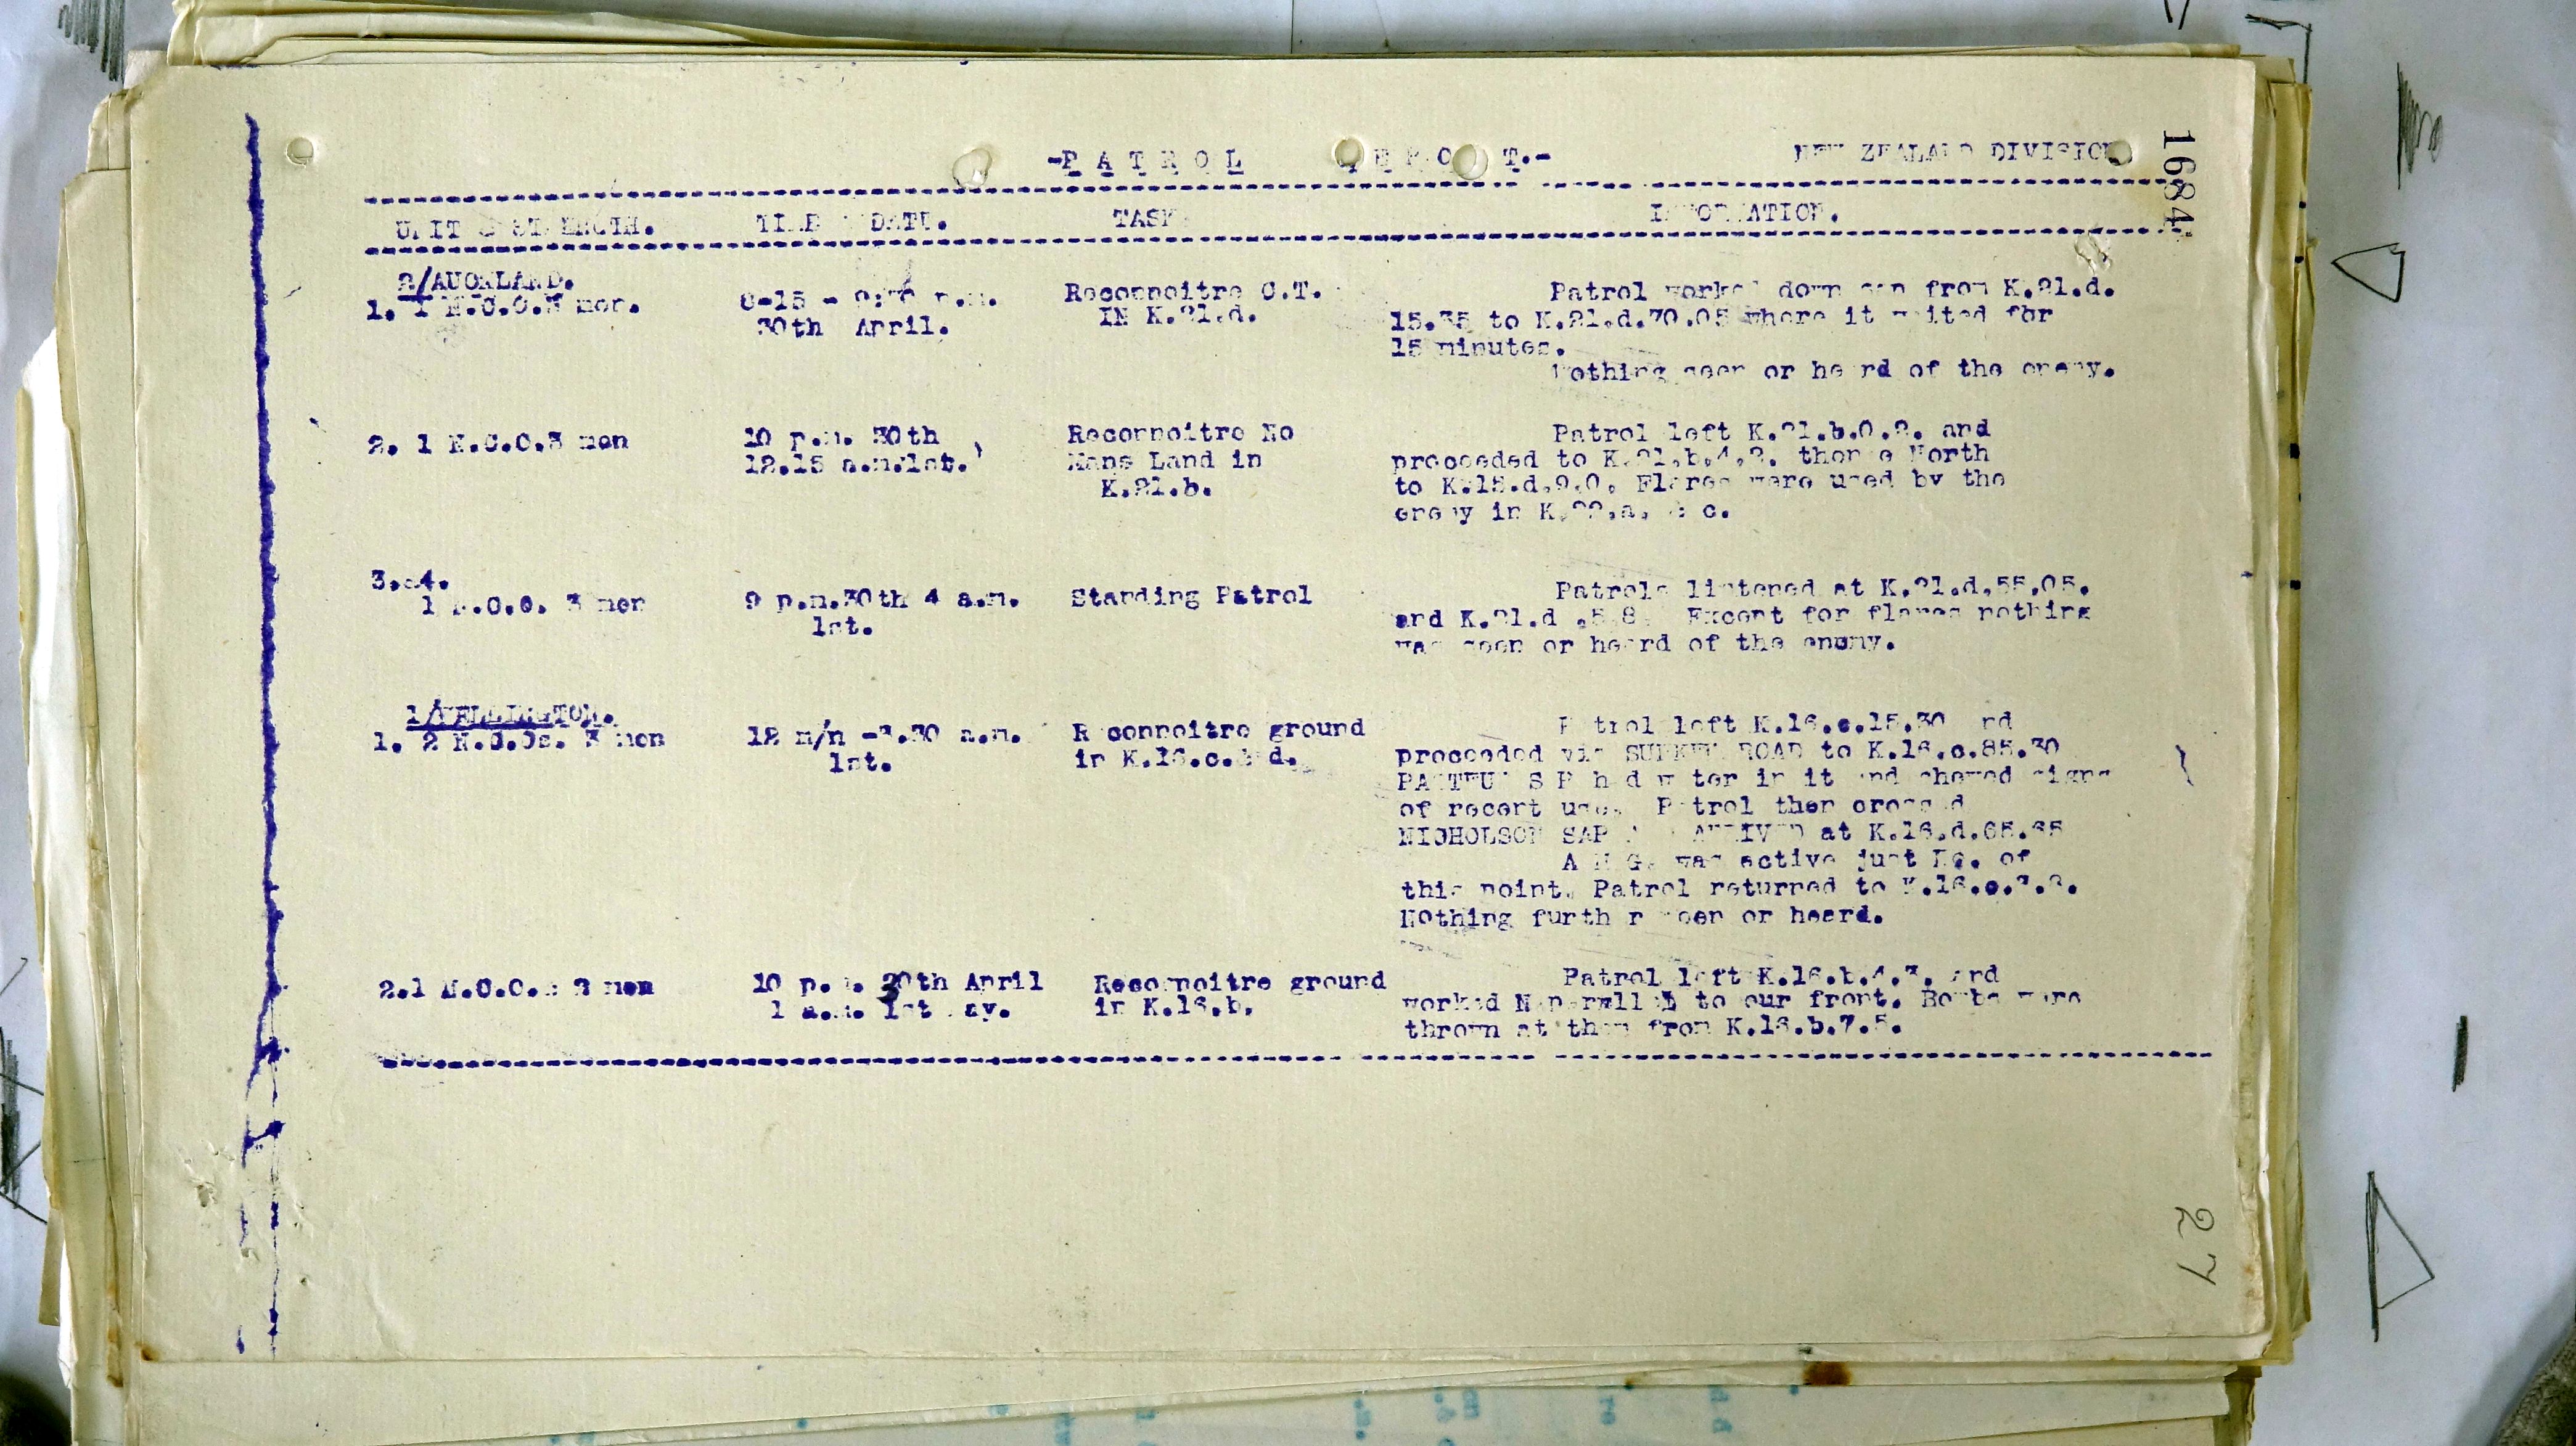 -PATROL REPORT.-
NEW ZEALAND DIVISION
1684
UNIT & STRENGTH. TIME & DATE. TASK INFORMATION.
2/AUCKLAND.
1. 1 N.C.O.3 men.
30th April.
Reconnoitre C.T.
IN K.21.d.
Patrol worked down from K.21.d.
15.35 to K.21.d.70.05 where it waited for
15 minutes.
Nothing seen or heard of the enemy.
2. 1 N.C.O.3 men
10 p.m. 30th
12.15 a.m.1st.
Reconnoitre No
Mans Land in
K.21.b.
Patrol left K.21.b.0.2. and
proceeded to K.21.b.4.2. thence North
to K.15.d.9.0. Flares were used by the
enemy in K.22.a. & c.
3.&4.
1 N.C.O. 3 men
9 p.m.30th 4 a.m.
1st.
Standing Patrol
Patrols listened at K.21.d.55.05.
and K.21.d .5.8. Except for flares nothing
was seen or heard of the enemy.
1/WELLINGTON.
1. 2 N.C.Os. 3 men
12 m/n -3.30 a.m.
1st.
Reconnoitre ground
in K.16.c.& d.
Patrol left K.16.c.15.30 and
proceeded via ROAD to K.16.c.85.30
had water in it and showed signs
of recent use. Patrol then crossed
NICHOLSON SAP ARRIVED at K.16.d.65.65
A M.G. was active just No. of
this point. Patrol returned to K.16.c.3.8.
Nothing further seen or heard.
2.1 N.C.O. & 3 men
10 p.m. 30th April
1 a.m. 1st May.
Reconnoitre ground
in K.16.b.
Patrol left K.16.b.4.3. and
worked N. to our front. Bombs were
thrown at them from K.16.b.7.5.
27